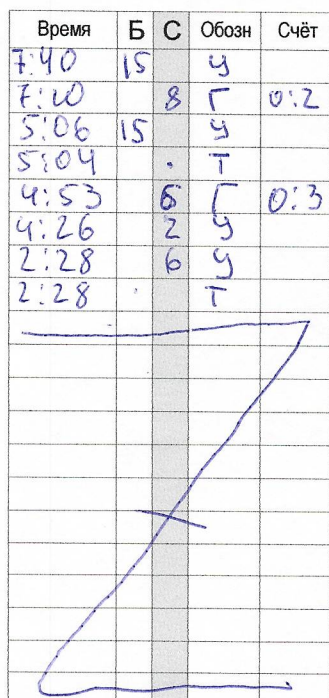 Время Б С Обозн Счёт
7:40 15 У
7:20 8 Г 0:2
5:06 15 У
5:04 . Т
4:53 6 Г 0:3
4:26 2 У
2:28 6 У
2:28 . Т